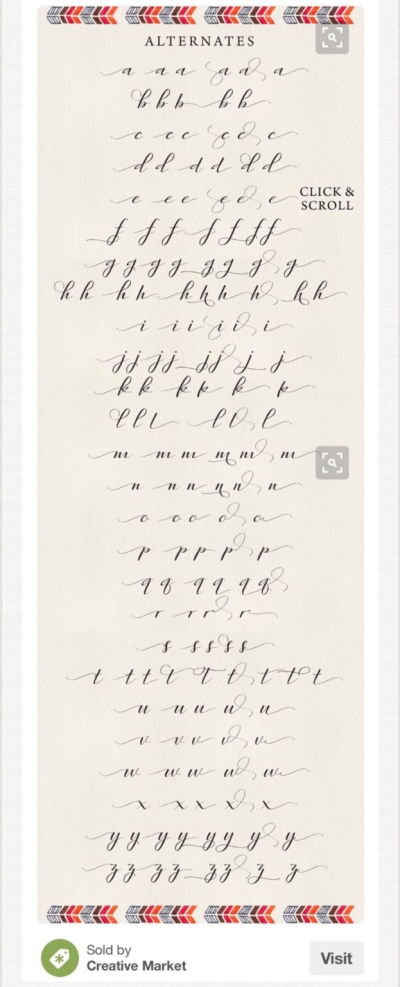 ALTERNATES
a a a a a a
b b b b b
c c c c c c
d d d d d d
e e e e e e
CLICK &
SCROLL
f f f f f f f
g g g g g g g g
h h h h h h h h h h
i i i i i i
j j j j j j j j
k k k k k k
l l l l l l
m m m m m m
n n n n n n
o o o o o
p p p p p
q q q q q q
r r r r
s s s s s
t t t t t t t t t
u u u u u
v v v v v
w w w w w
x x x x x
y y y y y y y y
z z z z z z z z
Sold by
Creative Market
Visit